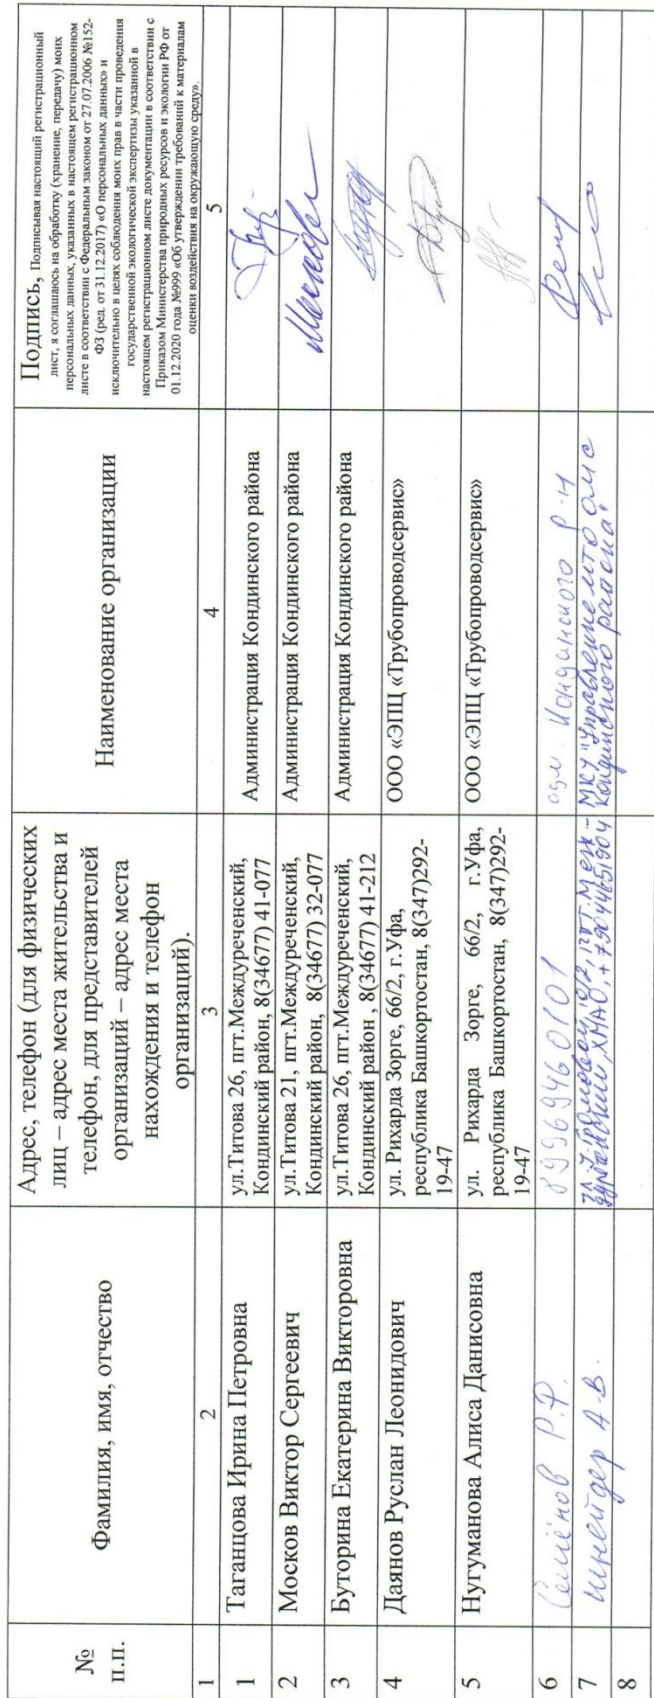 №
п.п.
Фамилия, имя, отчество
Адрес, телефон (для физических
лиц – адрес места жительства и
телефон, для представителей
организаций – адрес места
нахождения и телефон
организаций).
Наименование организации
Подпись, Подписывая настоящий регистрационный
лист, я соглашаюсь на обработку (хранение, передачу) моих
персональных данных, указанных в настоящем регистрационном
листе в соответствии с Федеральным законом от 27.07.2006 №152-
ФЗ (ред. от 31.12.2017) «О персональных данных» и
исключительно в целях соблюдения моих прав в части проведения
государственной экологической экспертизы указанной в
настоящем регистрационном листе документации в соответствии с
Приказом Министерства природных ресурсов и экологии РФ от
01.12.2020 года №999 «Об утверждении требований к материалам
оценки воздействия на окружающую среду».
1
2
3
4
5
1
Таганцова Ирина Петровна
ул.Титова 26, пгт.Междуреченский,
Кондинский район, 8(34677) 41-077
Администрация Кондинского района
2
Москов Виктор Сергеевич
ул.Титова 21, пгт.Междуреченский,
Кондинский район, 8(34677) 32-077
Администрация Кондинского района
3
Буторина Екатерина Викторовна
ул.Титова 26, пгт.Междуреченский,
Кондинский район , 8(34677) 41-212
Администрация Кондинского района
4
Даянов Руслан Леонидович
ул. Рихарда Зорге, 66/2, г.Уфа,
республика Башкортостан, 8(347)292-
19-47
ООО «ЭПЦ «Трубопроводсервис»
5
Нугуманова Алиса Данисовна
ул. Рихарда Зорге, 66/2, г.Уфа,
республика Башкортостан, 8(347)292-
19-47
ООО «ЭПЦ «Трубопроводсервис»
6
Семёнов Р.Р.
89969460101
адм. Кондинского р-н
7
Шнейдер А.В.
пгт. Меж-
ХМАО, +79044651904
МКУ "Управление МТО ОМС
Кондинского района"
8